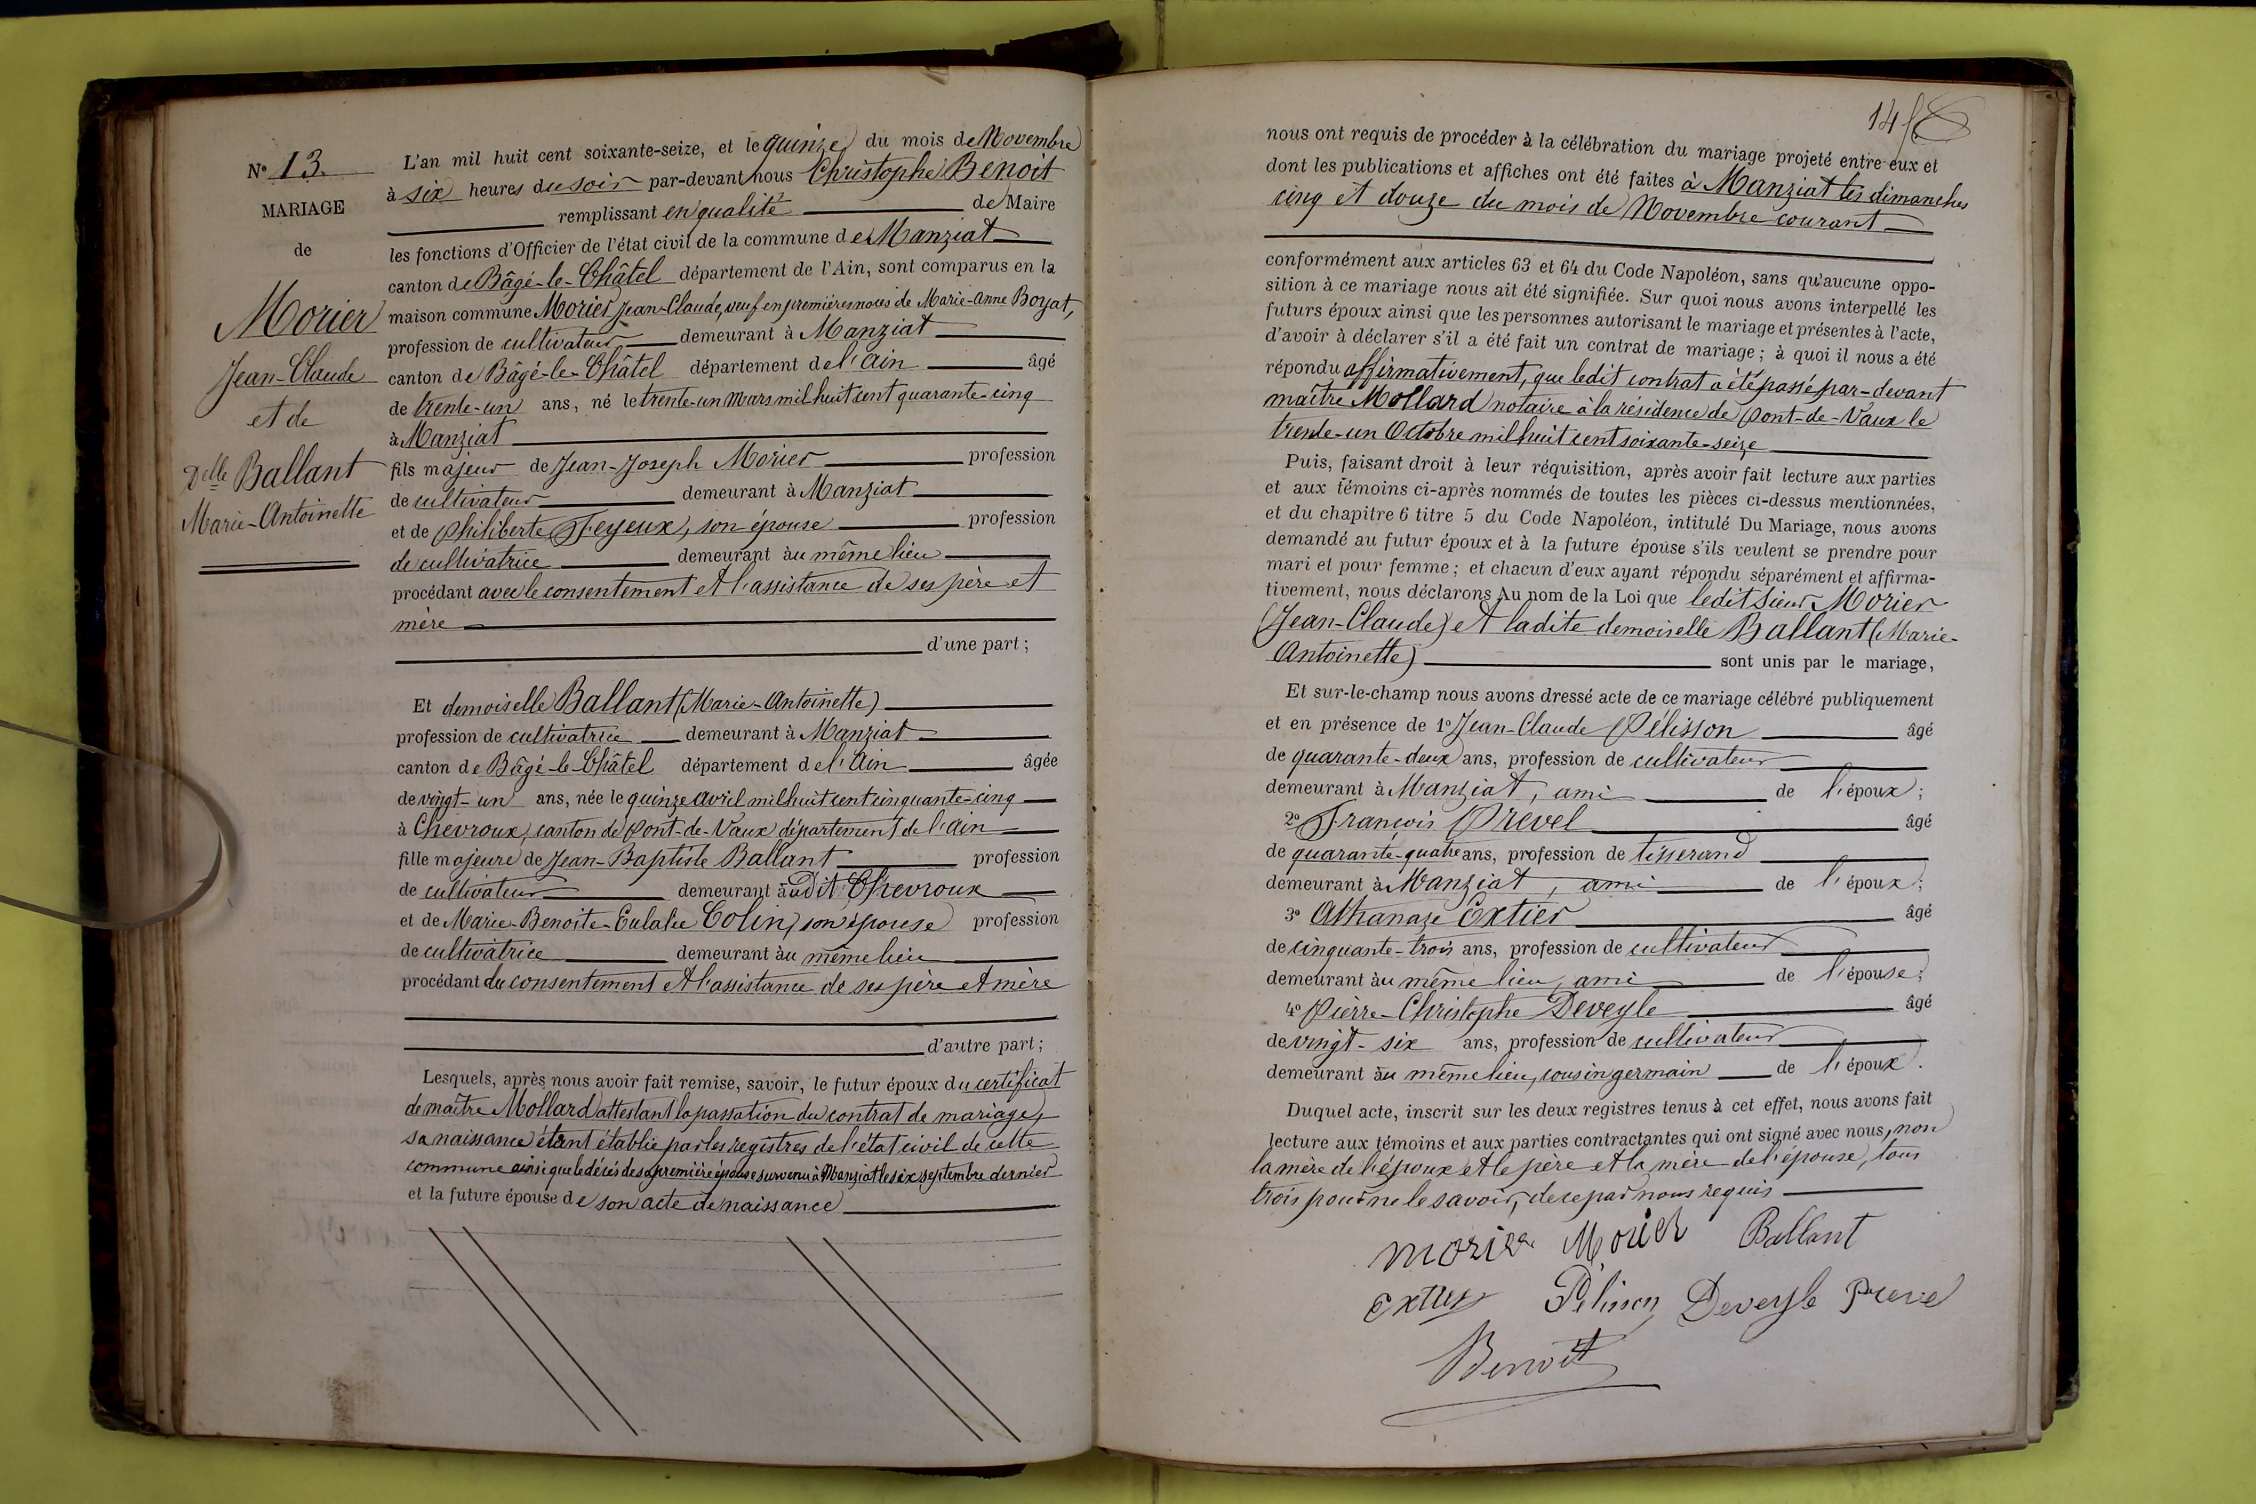 N° 13.
MARIAGE
de
Morier
Jean-Claude
et de
Delle Ballant
Marie-Antoinette
L'an mil huit cent soixante-seize, et le quinze du mois de Novembre
à six heures du soir par-devant nous Christophe Benoit
remplissant en qualité de Maire
les fonctions d'Officier de l'état civil de la commune de Manziat
canton de Bâgé-le-Châtel département de l'Ain, sont comparus en la
maison commune Morier Jean-Claude, veuf en premières noces de Marie-Anne Boyat,
profession de cultivateur demeurant à Manziat
canton de Bâgé-le-Châtel département de l'Ain âgé
de trente-un ans, né le trente-un Mars mil huit cent quarante-cinq
à Manziat
fils majeur de Jean-Joseph Morier profession
de cultivateur demeurant à Manziat
et de Philiberte Feyeux, son épouse profession
de cultivatrice demeurant au même lieu
procédant avec le consentement et l'assistance de ses père et
mère
d'une part;
Et demoiselle Ballant (Marie-Antoinette)
profession de cultivatrice demeurant à Manziat
canton de Bâgé-le-Châtel département de l'Ain âgée
de vingt-un ans, née le quinze avril mil huit cent cinquante-cinq
à Chevroux, canton de Pont-de-Vaux département de l'Ain
fille majeure de Jean-Baptiste Ballant profession
de cultivateur demeurant audit Chevroux
et de Marie-Benoite-Eulalie Colin, son épouse profession
de cultivatrice demeurant au même lieu
procédant du consentement et l'assistance de ses père et mère
d'autre part;
Lesquels, après nous avoir fait remise, savoir, le futur époux du certificat
de maître Mollard attestant la passation du contrat de mariage,
sa naissance étant établie par les registres de l'état civil de cette
commune ainsi que le décès de sa première épouse survenu à Manziat le six septembre dernier
et la future épouse de son acte de naissance
14
nous ont requis de procéder à la célébration du mariage projeté entre eux et
dont les publications et affiches ont été faites à Manziat les dimanches
cinq et douze du mois de Novembre courant
conformément aux articles 63 et 64 du Code Napoléon, sans qu'aucune oppo-
sition à ce mariage nous ait été signifiée. Sur quoi nous avons interpellé les
futurs époux ainsi que les personnes autorisant le mariage et présentes à l'acte,
d'avoir à déclarer s'il a été fait un contrat de mariage; à quoi il nous a été
répondu affirmativement, que ledit contrat a été passé par-devant
maître Mollard notaire à la résidence de Pont-de-Vaux le
trente-un Octobre mil huit cent soixante-seize
Puis, faisant droit à leur réquisition, après avoir fait lecture aux parties
et aux témoins ci-après nommés de toutes les pièces ci-dessus mentionnées,
et du chapitre 6 titre 5 du Code Napoléon, intitulé Du Mariage, nous avons
demandé au futur époux et à la future épouse s'ils veulent se prendre pour
mari et pour femme; et chacun d'eux ayant répondu séparément et affirma-
tivement, nous déclarons Au nom de la Loi que ledit Sieur Morier
(Jean-Claude) et ladite demoiselle Ballant (Marie-
Antoinette) sont unis par le mariage,
Et sur-le-champ nous avons dressé acte de ce mariage célébré publiquement
et en présence de 1° Jean-Claude Pélisson âgé
de quarante-deux ans, profession de cultivateur
demeurant à Manziat, ami de l'époux;
2° François Prevel âgé
de quarante-quatre ans, profession de tisserand
demeurant à Manziat, ami de l'époux;
3° Athanaze Extier âgé
de cinquante-trois ans, profession de cultivateur
demeurant au même lieu, ami de l'épouse;
4° Pierre-Christophe Deveyle âgé
de vingt-six ans, profession de cultivateur
demeurant au même lieu, cousin germain de l'époux.
Duquel acte, inscrit sur les deux registres tenus à cet effet, nous avons fait
lecture aux témoins et aux parties contractantes qui ont signé avec nous, non
la mère de l'époux et le père et la mère de l'épouse, tous
trois pour ne le savoir, de ce par nous requis
Morier Morier Ballant
Extier Pélisson Deveyle Prevel
Benoit